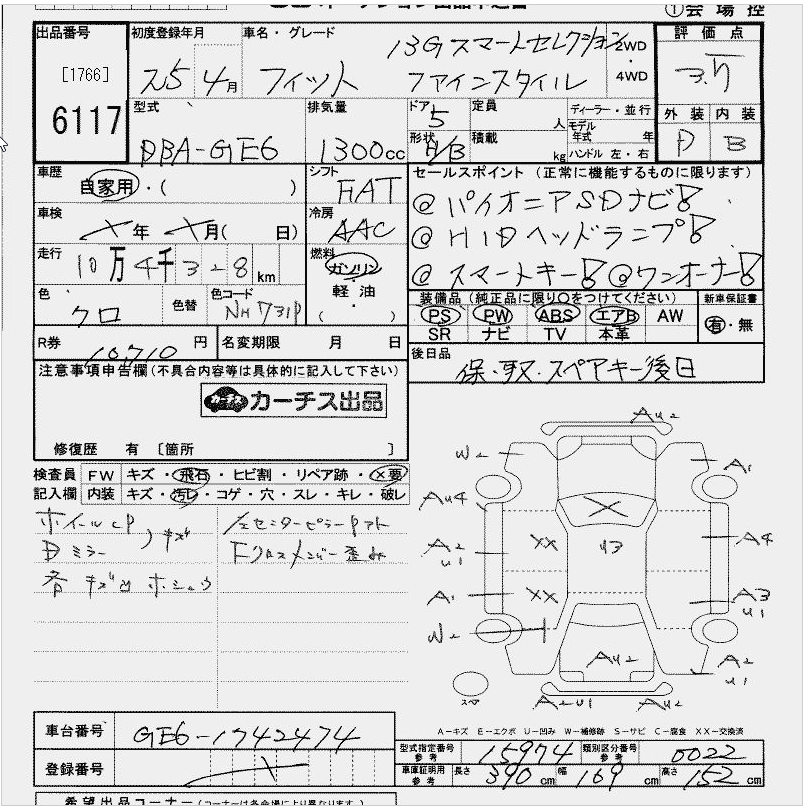 ①会場控
出品番号
[1766]
6117
初度登録年月
25 4月
車名・グレード
13Gスマートセレクション
フィット ファインスタイル
2WD
4WD
評価点
3.5
外装 内装
D B
型式
DBA-GE6
排気量
1300cc
ドア
5
形状
H/B
定員
人
積載
kg
ディーラー・並行
モデル年式 年
ハンドル 左・右
車歴
自家用・( )
シフト
FAT
車検
年 月( 日)
冷房
AAC
走行
10万4千328km
燃料
ガソリン
・
軽油
( )
色
クロ
色替
色コード
NH731P
セールスポイント (正常に機能するものに限ります)
@パイオニアSDナビ!
@HIDヘッドランプ!
@スマートキー!@ワンオーナー!
装備品 (純正品に限り○をつけてください)
PS PW ABS エアB AW
SR ナビ TV 本革
新車保証書
有・無
R券
10,710円
名変期限 月 日
後日品
保・取・スペアキー後日
注意事項申告欄(不具合内容等は具体的に記入して下さい)
カーチス出品
修復歴 有 [箇所 ]
検査員 FW キズ・飛石・ヒビ割・リペア跡・X要
記入欄 内装 キズ・汚レ・コゲ・穴・スレ・キレ・破レ
ホイールcP
Dミラー
キズ
各 キズ凹 ホシュウ
センターピラーアト
Fクロスメンバー歪み
AU2
W2
A1
AU4
A2
U1
XX
U3
A4
A1
XX
A3
U1
W2
AU2
A2
U1
スペア
A2U1
AU2
A-キズ E-エクボ U-凹み W-補修跡 S-サビ C-腐食 XX-交換済
車台番号
GE6-1742474
登録番号
型式指定番号参考
15974
類別区分番号参考
0022
車庫証明用参考
長さ 390cm 幅 169cm 高さ 152cm
希望出品コーナー